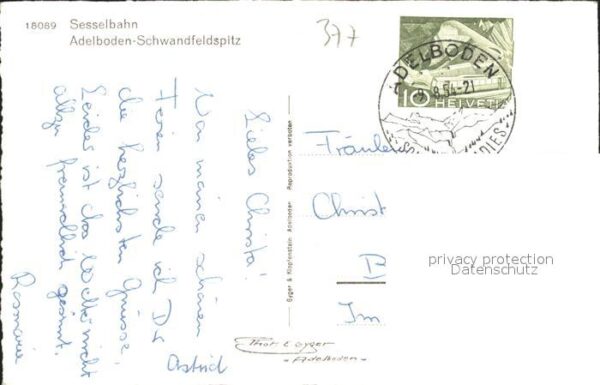 18069 Sesselbahn
Adelboden-Schwandfeldspitz
377
ADELBODEN
9.8.54-21
10 HELVETIA
Liebes Christa!
Von meinen schönen
Ferien sende ich Dir
die herzlichsten Grüsse.
Leider ist das Wetter nicht
allzu freundlich gesinnt.
Astrid
Rosmarie
Gyger & Klopfenstein Adelboden Reproduktion verboten
Fräulein
Christ
B
Im
privacy protection
Datenschutz
Phot. E. Gyger
Adelboden